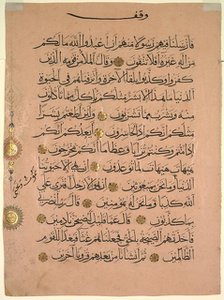 وقف
فَأَرْسَلْنَا فِيهِمْ رَسُولًا مِنْهُمْ أَنِ اعْبُدُوا اللَّهَ مَا لَكُمْ
مِنْ إِلَهٍ غَيْرُهُ أَفَلَا تَتَّقُونَ وَقَالَ الْمَلَأُ مِنْ قَوْمِهِ الَّذِينَ
كَفَرُوا وَكَذَّبُوا بِلِقَاءِ الْآخِرَةِ وَأَتْرَفْنَاهُمْ فِي الْحَيَوةِ
الدُّنْيَا مَا هَذَا إِلَّا بَشَرٌ مِثْلُكُمْ يَأْكُلُ مِمَّا تَأْكُلُونَ
مِنْهُ وَيَشْرَبُ مِمَّا تَشْرَبُونَ وَلَئِنْ أَطَعْتُمْ بَشَرًا
مِثْلَكُمْ إِنَّكُمْ إِذًا لَخَاسِرُونَ أَيَعِدُكُمْ أَنَّكُمْ إِذَا
مِتُّمْ وَكُنْتُمْ تُرَابًا وَعِظَامًا أَنَّكُمْ مُخْرَجُونَ
هَيْهَاتَ هَيْهَاتَ لِمَا تُوعَدُونَ إِنْ هِيَ إِلَّا حَيَاتُنَا
الدُّنْيَا نَمُوتُ وَنَحْيَا وَمَا نَحْنُ بِمَبْعُوثِينَ إِنْ هُوَ إِلَّا رَجُلٌ افْتَرَى عَلَى
اللَّهِ كَذِبًا وَمَا نَحْنُ لَهُ بِمُؤْمِنِينَ قَالَ رَبِّ انْصُرْنِي
بِمَا كَذَّبُونِ قَالَ عَمَّا قَلِيلٍ لَيُصْبِحُنَّ نَادِمِينَ
فَأَخَذَتْهُمُ الصَّيْحَةُ بِالْحَقِّ فَجَعَلْنَاهُمْ غُثَاءً فَبُعْدًا لِلْقَوْمِ
الظَّالِمِينَ ثُمَّ أَنْشَأْنَا مِنْ بَعْدِهِمْ قُرُونًا آخَرِينَ